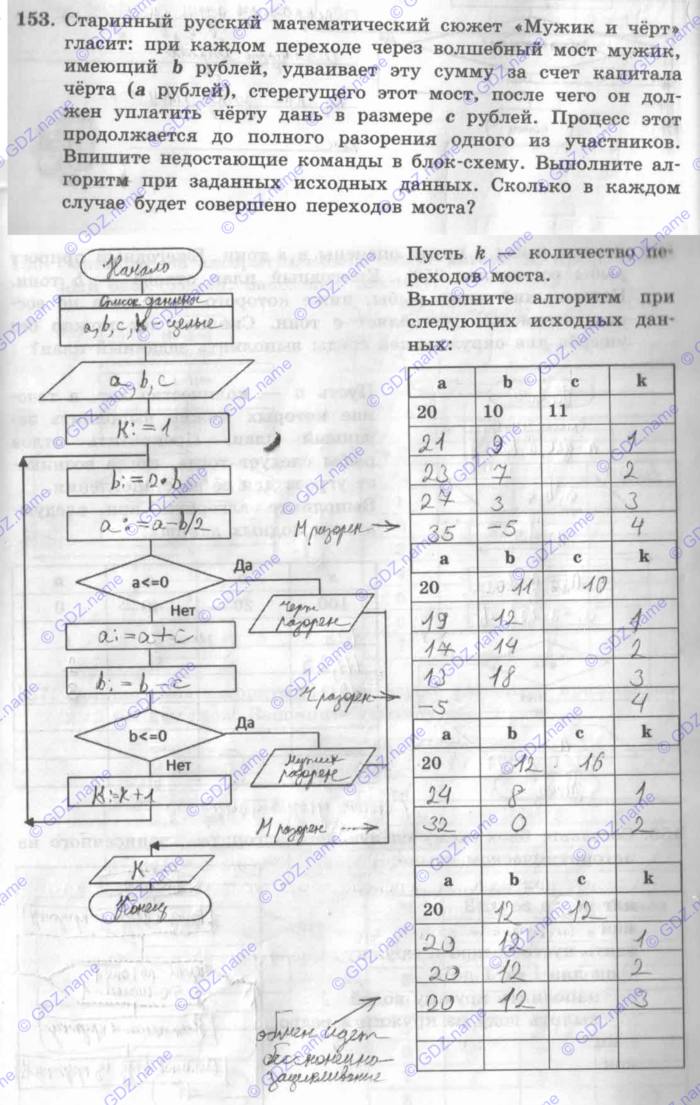 153. Старинный русский математический сюжет «Мужик и чёрт»
гласит: при каждом переходе через волшебный мост мужик,
имеющий b рублей, удваивает эту сумму за счет капитала
чёрта (a рублей), стерегущего этот мост, после чего он дол-
жен уплатить чёрту дань в размере c рублей. Процесс этот
продолжается до полного разорения одного из участников.
Впишите недостающие команды в блок-схему. Выполните ал-
горитм при заданных исходных данных. Сколько в каждом
случае будет совершено переходов моста?
Начало
Список данных
a, b, c, K - целые
a, b, c
K:=1
b:=2*b
a:=a-b/2
a<=0
Да
Черт
разорен
Нет
a:=a+c
b:=b-c
b<=0
Да
Мужик
разорен
Нет
K:=K+1
K
Конец
Пусть k — количество пе-
реходов моста.
Выполните алгоритм при
следующих исходных дан-
ных:
a b c k
20 10 11
21 9 1
23 7 2
27 3 3
М разорен 35 -5 4
a b c k
20 11 10
19 12 1
17 14 2
13 18 3
Ч разорен -5 4
a b c k
20 12 16
24 8 1
М разорен 32 0 2
a b c k
20 12 12
20 12 1
20 12 2
20 12 3
обмен идет
бесконечно-
зацикливание
© GDZ.name